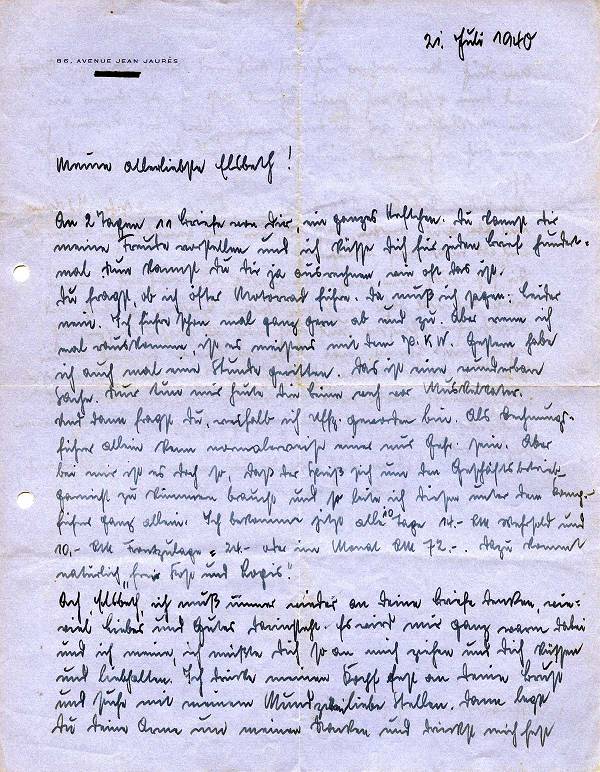 21. Juli 1940
86, AVENUE JEAN JAURÈS
Meine allerliebste Elsbeth!
An 2 Tagen 11 Briefe von Dir, ein ganzes . Du kannst Dir
meine Freude vorstellen und ich küsse Dich für jeden Brief hundert-
mal nun kannst Du Dir ja ausrechnen, wie oft das ist.
Du fragst, ob ich öfter Motorrad fahre. Da muß ich sagen: leider
nein. Ich fahre schon mal ganz gern ab und zu. Aber wenn ich
mal rauskomme, ist es meistens mit dem P.K.W. Gestern habe
ich auch mal eine Stunde geritten. Das ist eine wunderbare
Sache. Nur tun mir heute die Beine weh vor Muskelkater.
Und dann fragst Du, weshalb ich Uffz. geworden bin. Als Rechnungs-
führer allein kann normalerweise einer nur Gefr. sein. Aber
bei mir ist es doch so, daß der Spieß sich um den Geschäftsbetrieb
garnicht zu kümmern braucht und so leite ich diesen unter dem Komp.-
führer ganz allein. Ich bekomme jetzt alle 10 Tage 14.- RM Wehrsold und
10,- RM Frontzulage = 24.- oder im Monat RM 72.-. Dazu kommt
natürlich „freie Kost und Logis".
Ach, Elsbeth, ich muß immer wieder an Deine Briefe denken, wie-
viel Liebes und Gutes darinsteht. Es wird mir ganz warm dabei
und ich meine, ich müßte Dich so an mich ziehen und Dich küssen
und liebhalten. Ich drücke meinen Kopf fest an Deine Brust
und suche mit meinem Mund liebe Stellen. Dann legst
Du Deine Arme um meinen Nacken und drückst mich fest